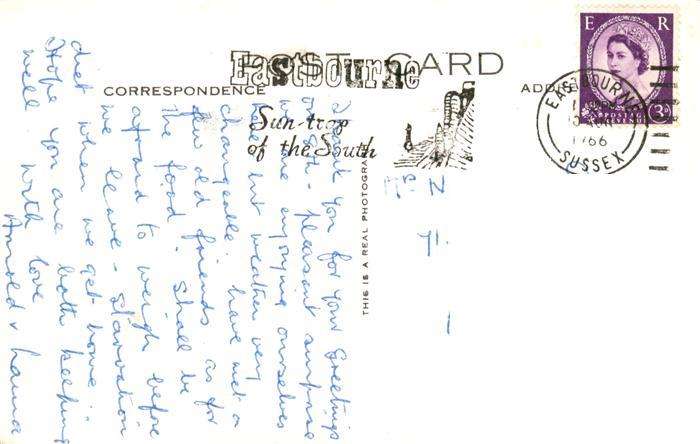 POST CARD
CORRESPONDENCE
ADDRESS
Eastbourne
Sun-trap
of the South
E R
3D
POSTAGE
REVENUE
EASTBOURNE
1966
SUSSEX
THIS IS A REAL PHOTOGRA
Thank you for your Greetings
pleasant surprise
we're enjoying ourselves
but weather very
changeable have met a
few old friends as for
the food shall be
afraid to weigh before
we leave - starvation
diet when we get home.
Hope you are both keeping
well with love
Arnold &
Mr N
71
1